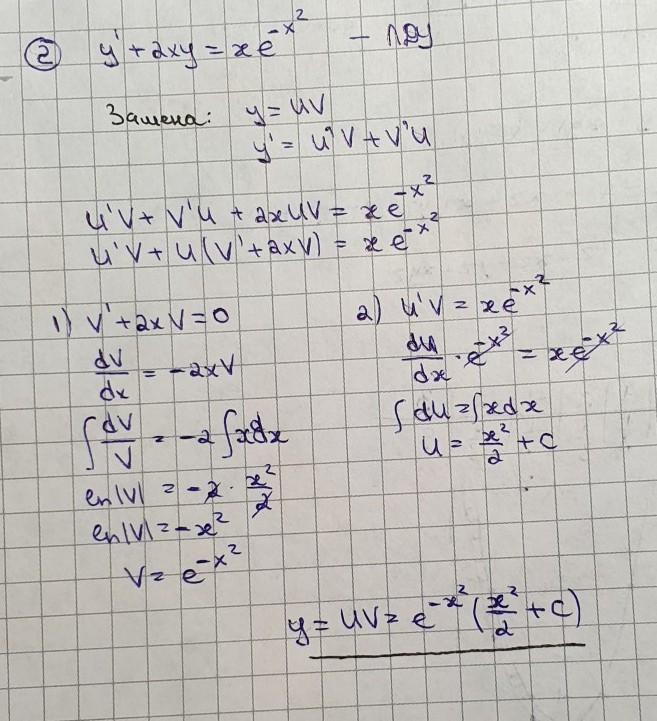 ② y' + 2xy = xe^{-x²} – ЛДУ
Замена: y = UV
y' = U'V + V'U
U'V + V'U + 2xUV = xe^{-x²}
U'V + U(V' + 2xV) = xe^{-x²}
1) V' + 2xV = 0
dV/dx = -2xV
∫ dV/V = -2∫xdx
ln|V| = -2 · x²/2
ln|V| = -x²
V = e^{-x²}
2) U'V = xe^{-x²}
dU/dx · e^{-x²} = xe^{-x²}
∫dU = ∫xdx
U = x²/2 + C
y = UV = e^{-x²}(x²/2 + C)